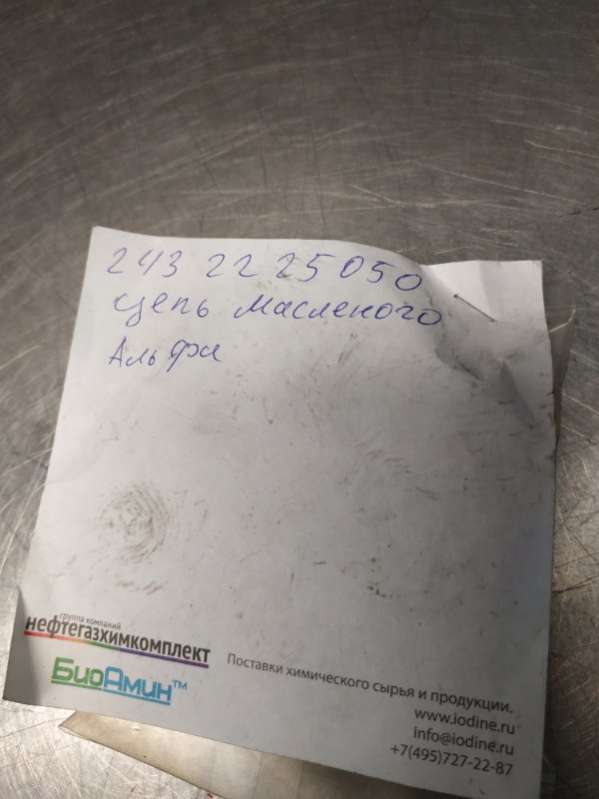 243 22 25050
цепь масленого
Альфа
группа компаний
нефтегазхимкомплект
БиоАмин™
Поставки химического сырья и продукции.
www.iodine.ru
info@iodine.ru
+7(495)727-22-87